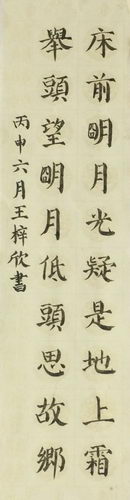 床前明月光疑是地上霜
舉頭望明月低頭思故鄉
丙申六月王梓欣書